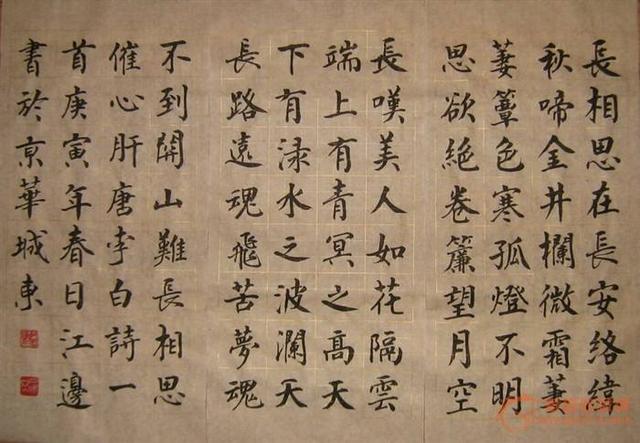 長相思在長安絡緯
秋啼金井欄微霜萋
萋簟色寒孤燈不明
思欲絶卷簾望月空
長嘆美人如花隔雲
端上有青冥之高天
下有淥水之波瀾天
長路遠魂飛苦夢魂
不到開山難長相思
催心肝唐李白詩一
首庚寅年春日江邊
書於京華城東